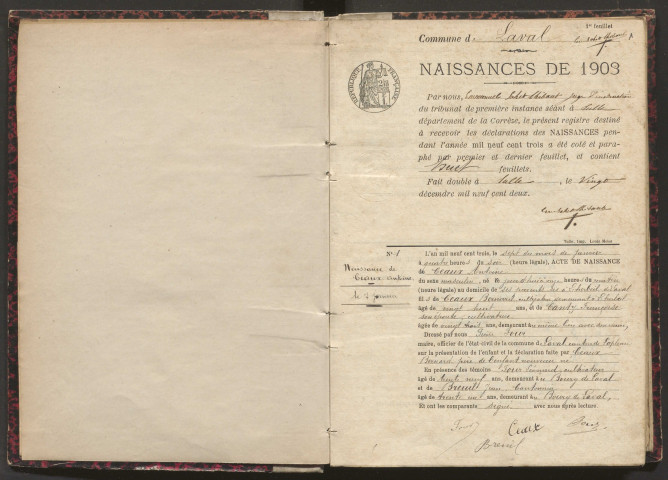 1er feuillet
Commune d Laval
RÉPUBLIQUE FRANÇAISE
NAISSANCES DE 1903
Par nous, juge d'instruction
du tribunal de première instance séant à Tulle
département de la Corrèze, le présent registre destiné
à recevoir les déclarations des NAISSANCES pen-
dant l'année mil neuf cent trois a été coté et para-
phé par premier et dernier feuillet, et contient
huit feuillets.
Fait double à Tulle, le Vingt
décembre mil neuf cent deux.
Tulle, Imp. Louis Moles
N° 1
Naissance de
Ceaux Antoine
le 7 janvier
L'an mil neuf cent trois, le sept du mois de janvier
à quatre heures du soir (heure légale), ACTE DE NAISSANCE
de Ceaux Antoine
du sexe masculin, né heures du matin
(heure légale) au domicile de ses parents
fils de Ceaux Bernard cultivateur
âgé de vingt huit ans, et de Françoise
son épouse, cultivatrice
âgée de vingt trois ans, demeurant au même lieu avec son mari,
Dressé par nous
maire, officier de l'état-civil de la commune de Laval canton de Lapleau
sur la présentation de l'enfant et la déclaration faite par Ceaux
Bernard père de l'enfant
En présence des témoins cultivateur
âgé de trente neuf ans, demeurant au Bourg de Laval
et de Breuil Jean Cantonnier
âgé de trente ans, demeurant au Bourg de Laval,
Et ont les comparants signé avec nous après lecture.
Ceaux
Breuil